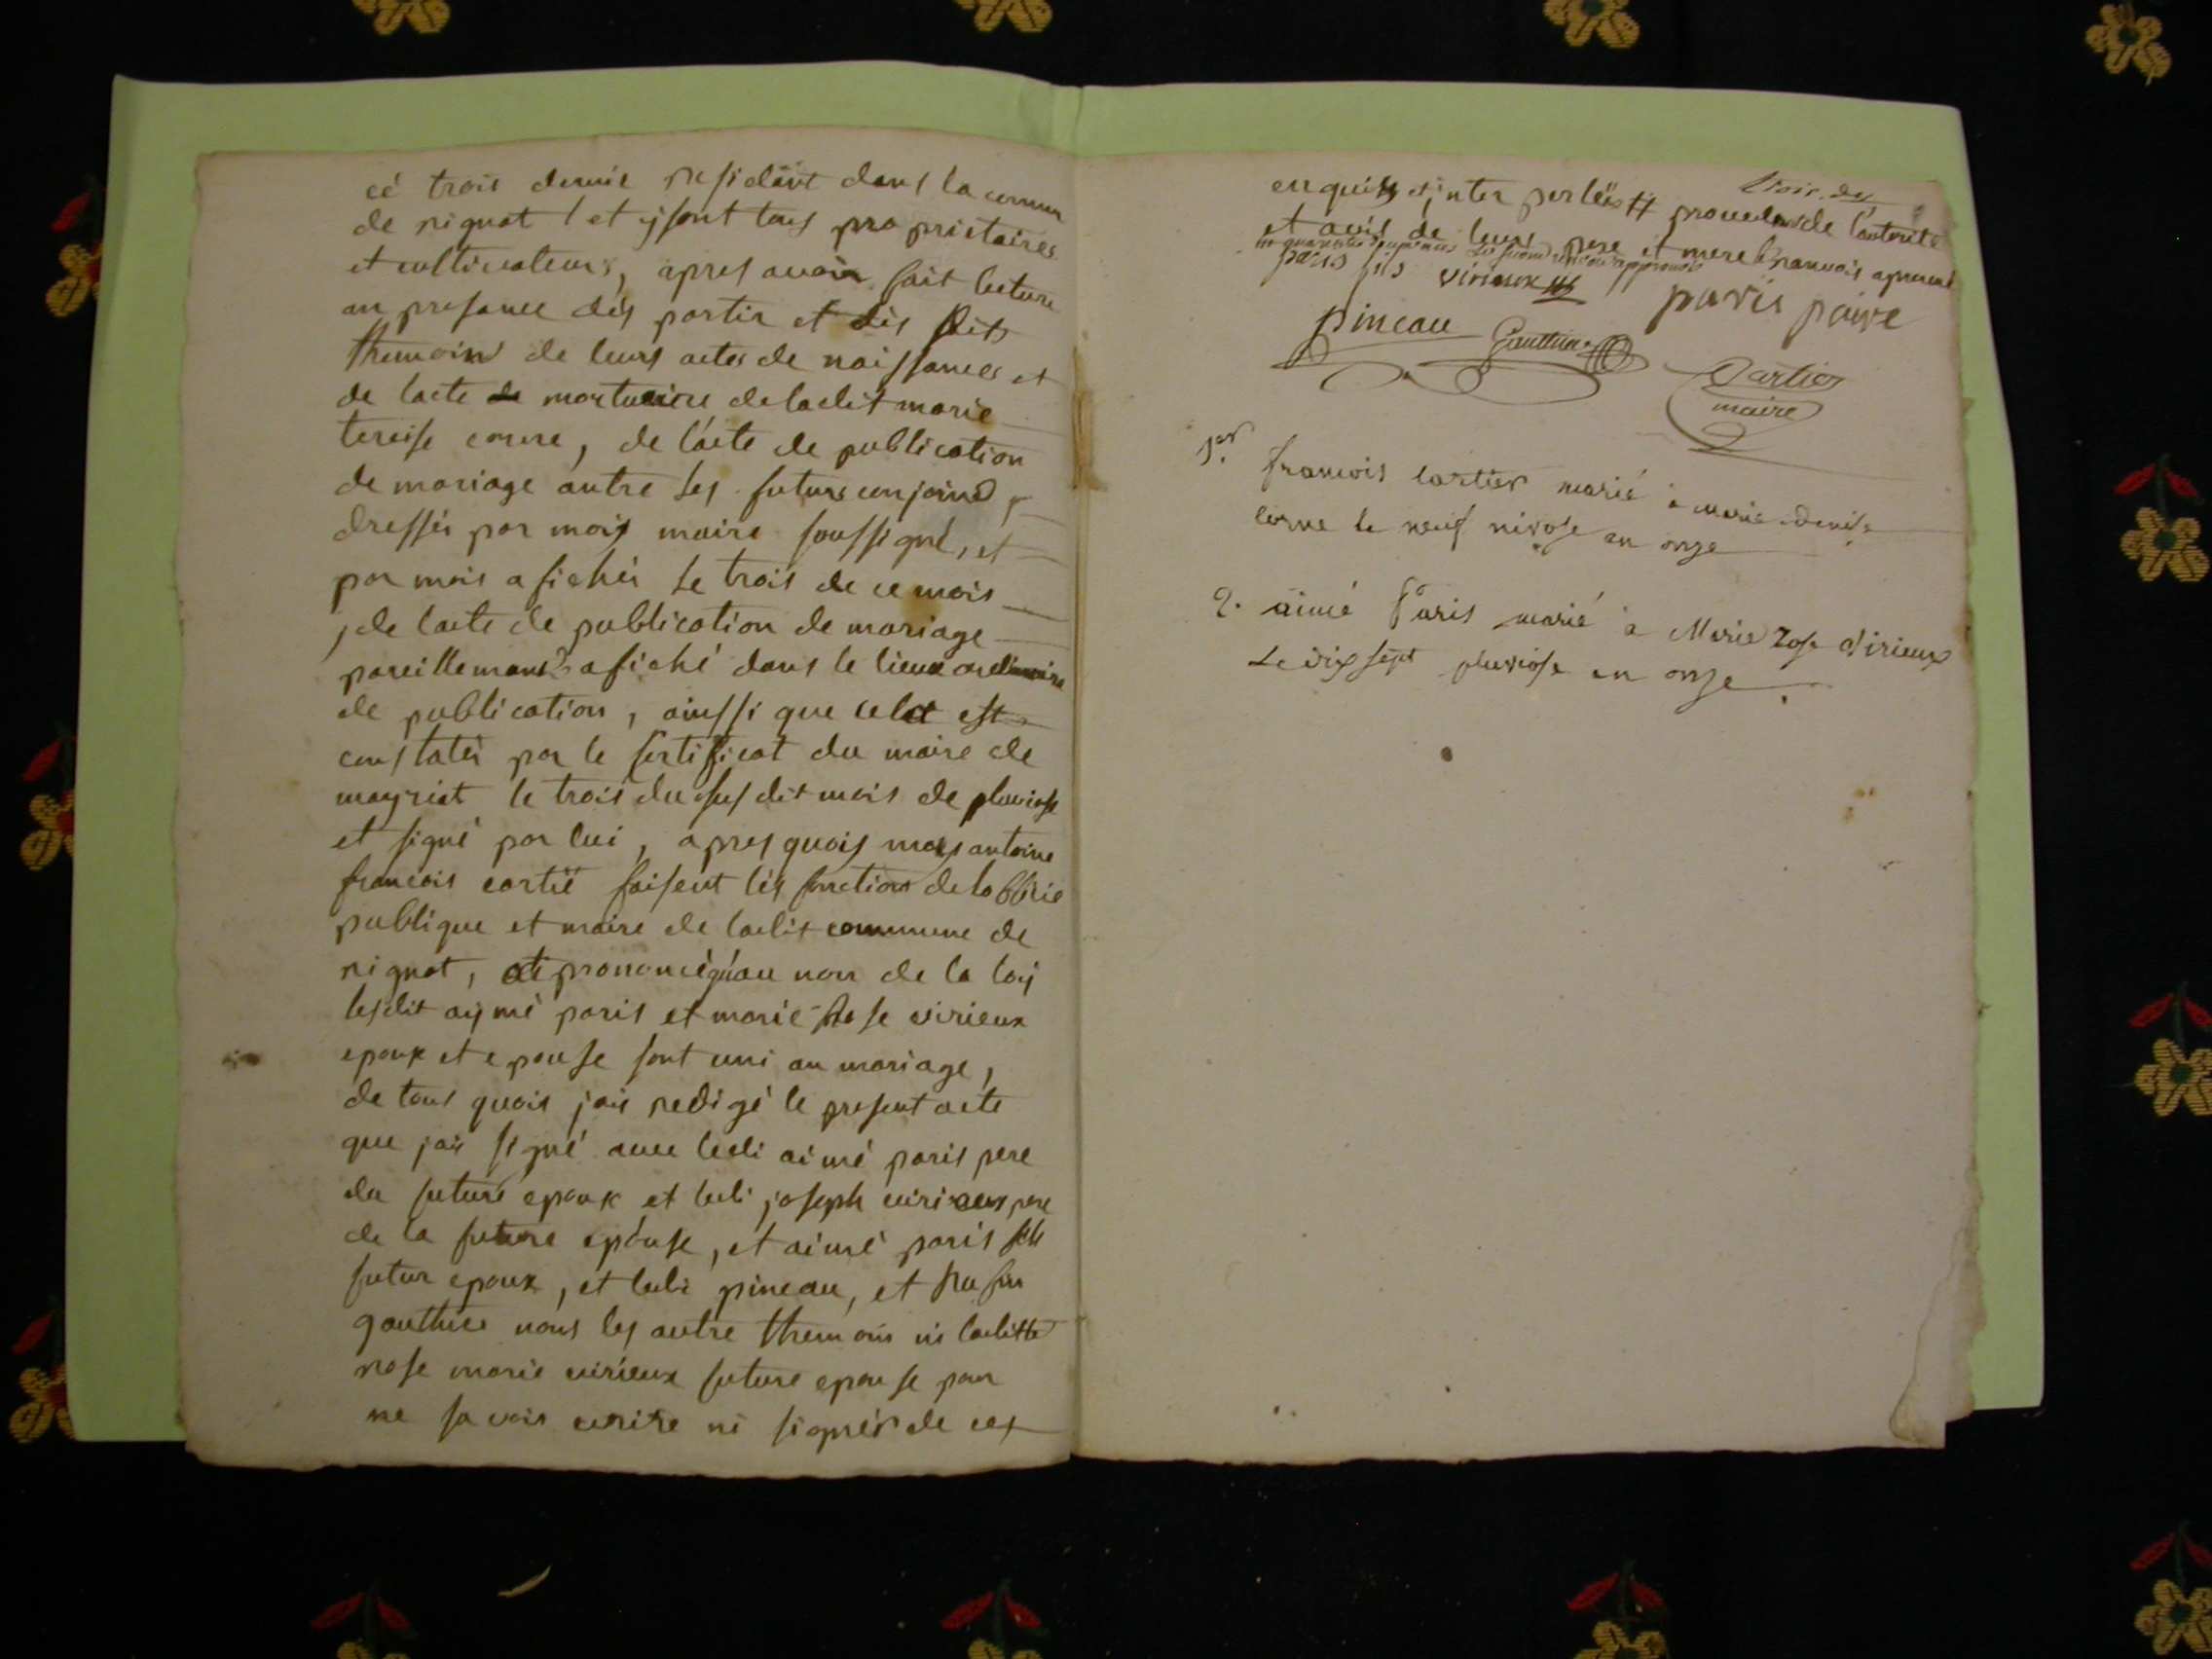 cé trois dernié residant dans la commun
de rignat et ysont tous propriétaires
et cultivateurs, apres avoir fait lecture
an presance dés partir et dès dits
themoins de leurs actes de naissances et
de lacte de mortuaire deladit marie
tereise corne, de lácte de publication
de mariage antre les futurs conjoins
dressés par mois maire soussigné, et
par mois afichés le trois de ce mois
, de lacte de publication de mariage
pareillemant afiché dans le lieux ordinaire
de publication, ainssi que cela est
constatés par le sertificat du maire de
meyriat le trois du susdit mois de pluviose
et signé par lui, apres quois mois antoine
francois cartié faisent lés fonctions
publique et maire de ladit commune de
rignat, at prononcé quau non de la loy
lesdit aymé paris et marie rose virieux
epoux et epouse sont uni an mariage,
de tous quois jais redigé le present acte
que jais signé avec ledi aimé paris pere
du futuré epoux et ledi joseph virieux pere
de la future epouse, et aimé paris fils
futur epoux, et ledi pineau, et
gauthier nons les autre themoin ni laditte
rose marie virieux future epouse pour
ne savoir ecrire ni signér de cex
enquis et inter perlés # procedens de l'autorité
et avis de leurs pere et mere
paris fils virieux paris paire
pineau Gauthier
Cartier
maire
1er. francois Cartier marié à marie denise
corne le neuf nivose an onze
2. aimé Paris marié à Marie Rose Virieux
Le dix sept pluviose an onze